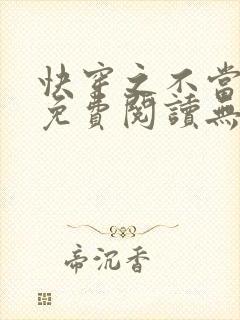 快穿之不當
免費閱讀無
帝沉香